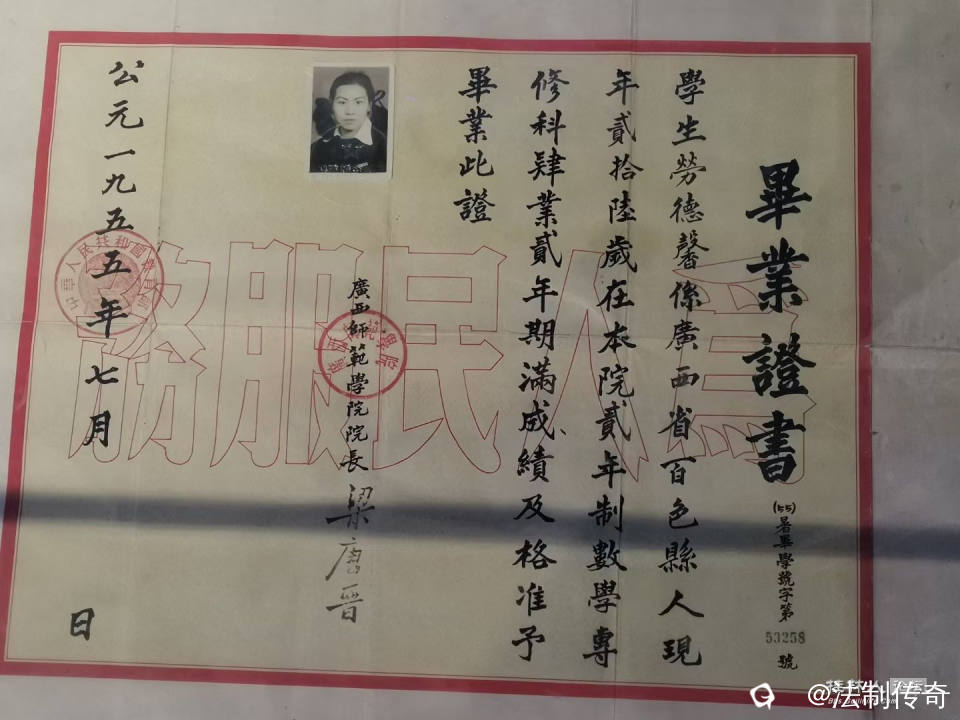 畢業證書
(55)暑畢學號字第53258號
學生勞德馨係廣西省百色縣人現
年貳拾陸歲在本院貳年制數學專
修科肄業貳年期滿成績及格准予
畢業此證
廣西師範學院院長
梁唐晋
公元一九五五年七月 日
為人民服務
中華人民共和國教育部
@法制传奇